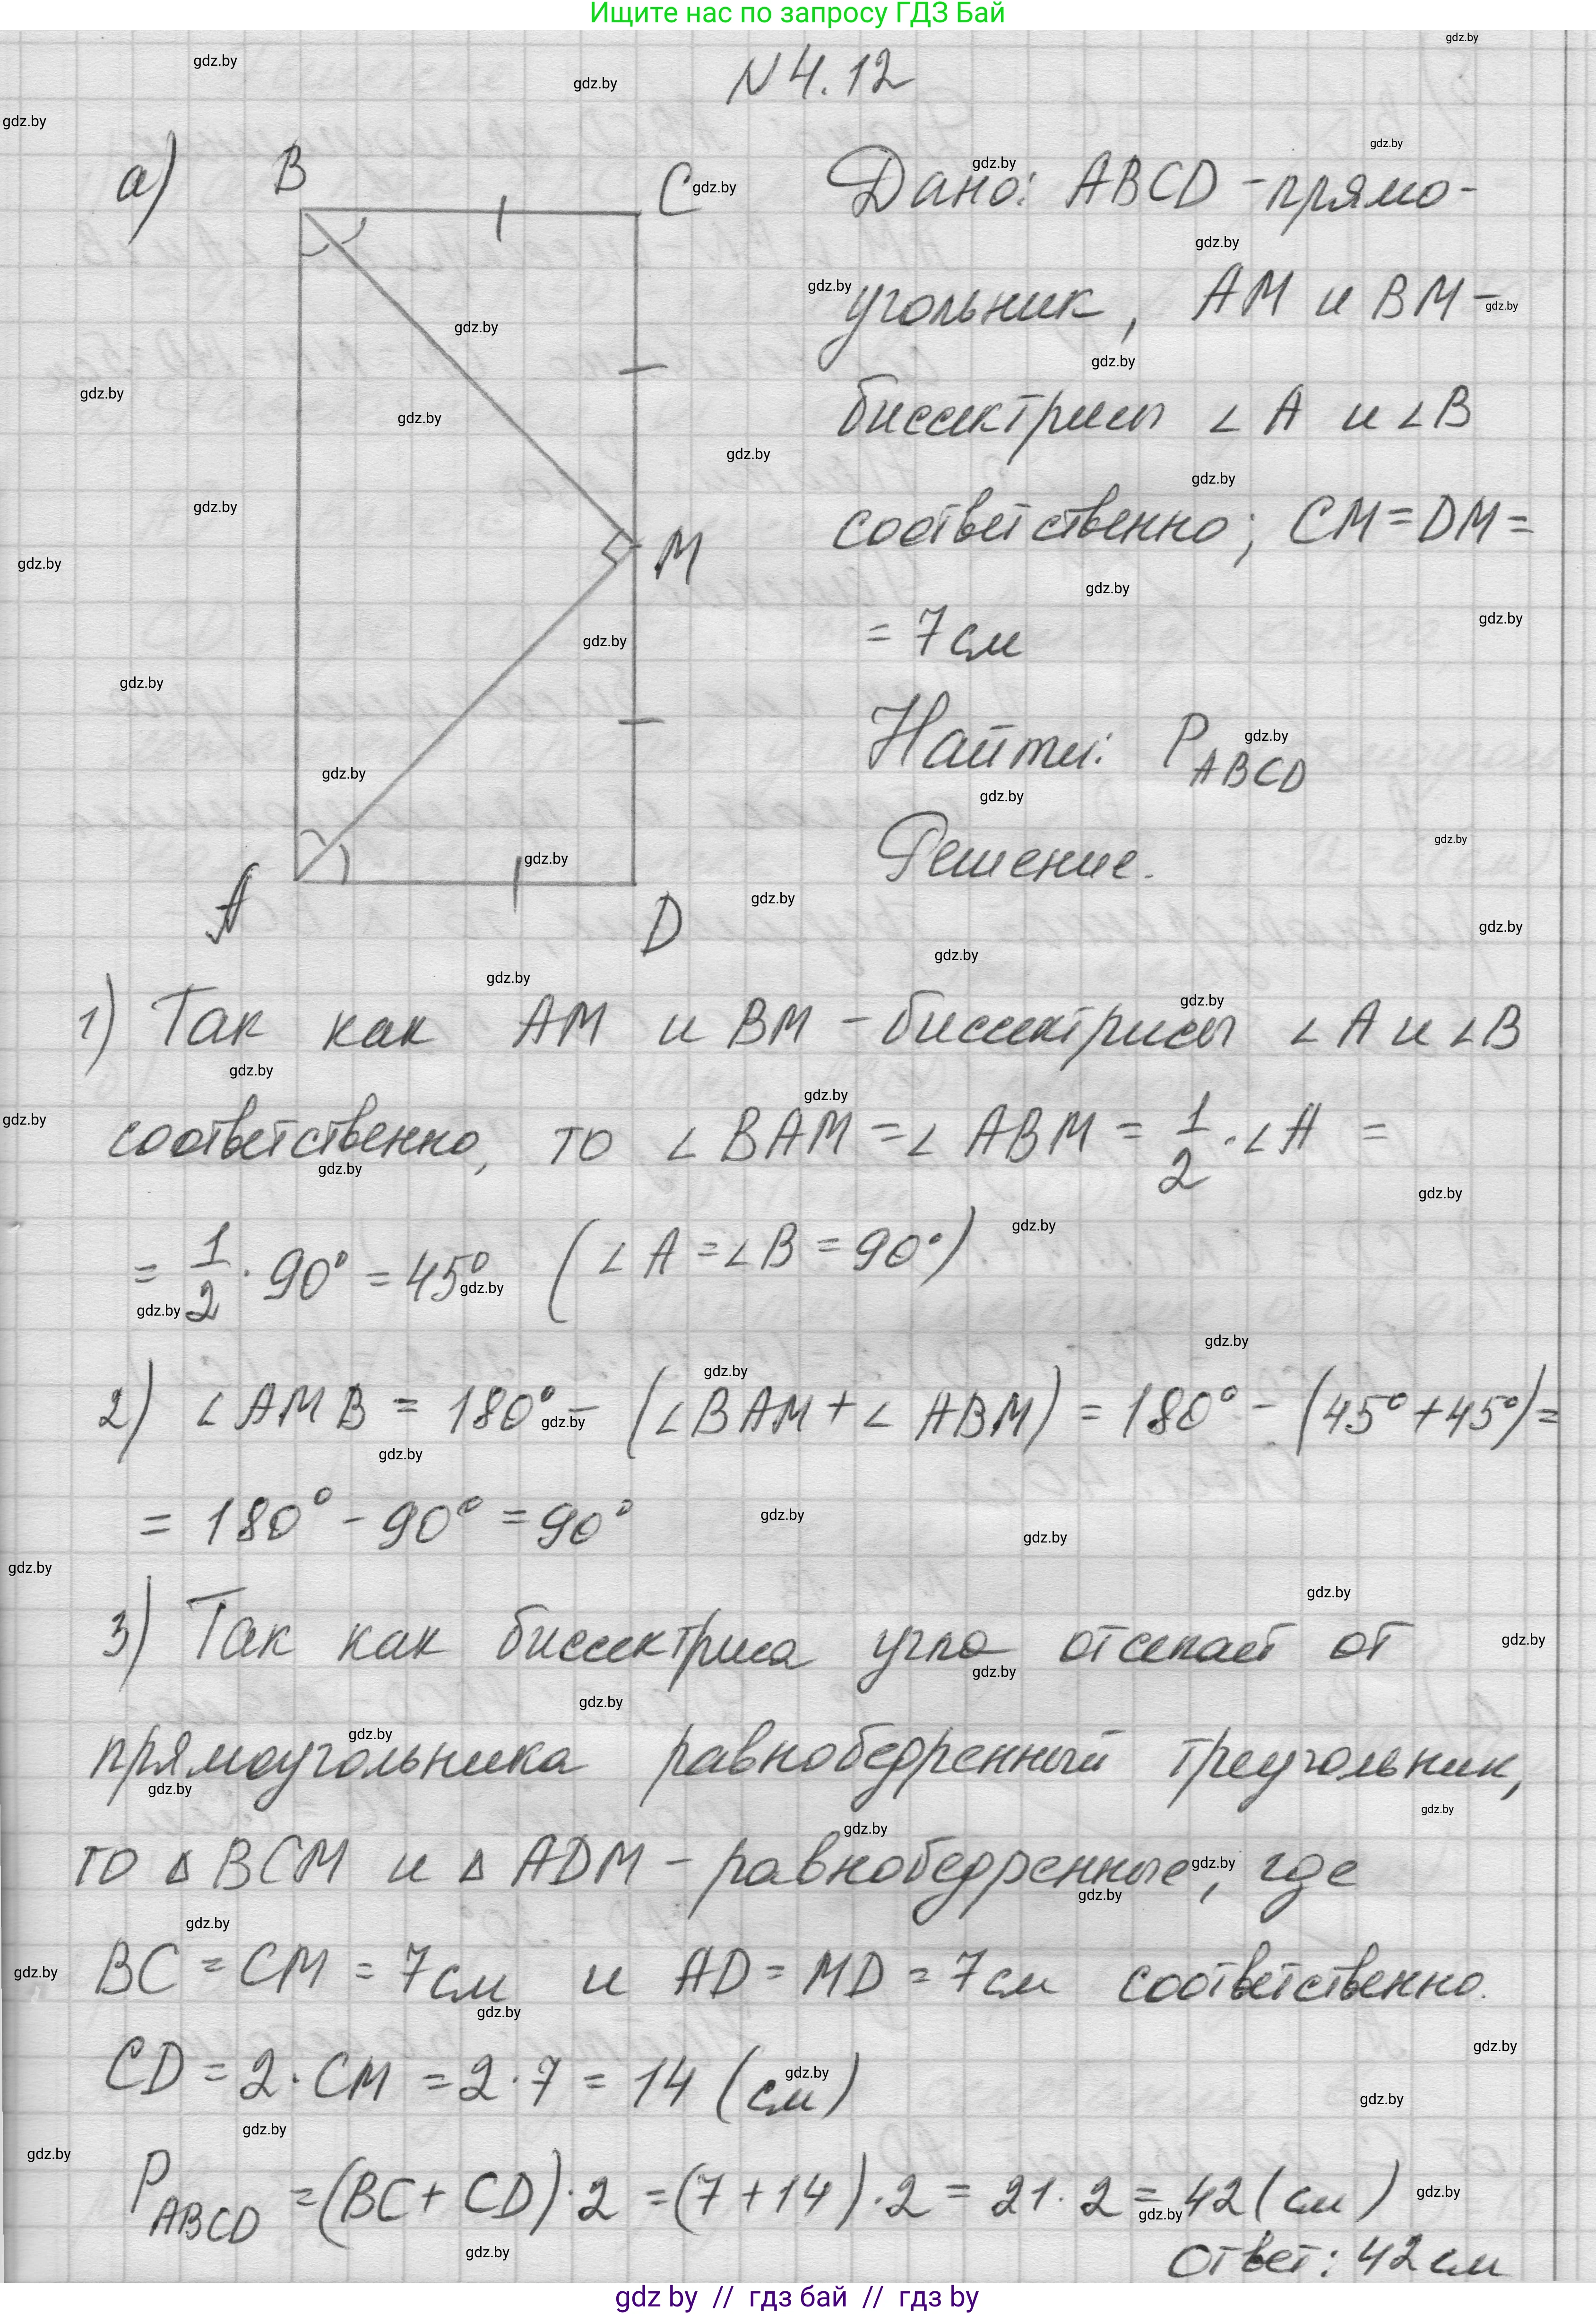 Ищите нас по запросу ГДЗ Бай
N 4.12
а) B C
M
A D
Дано: ABCD - прямо-
угольник, AM и BM -
биссектрисы ∠A и ∠B
соответственно; CM = DM =
= 7 см
Найти: P ABCD
Решение.
1) Так как AM и BM - биссектрисы ∠A и ∠B
соответственно, то ∠BAM = ∠ABM = 1/2 · ∠A =
= 1/2 · 90° = 45° (∠A = ∠B = 90°)
2) ∠AMB = 180° - (∠BAM + ∠ABM) = 180° - (45° + 45°) =
= 180° - 90° = 90°
3) Так как биссектриса угла отсекает от
прямоугольника равнобедренный треугольник,
то ΔBCM и ΔADM - равнобедренные, где
BC = CM = 7 см и AD = MD = 7 см соответственно.
CD = 2 · CM = 2 · 7 = 14 (см)
P ABCD = (BC + CD) · 2 = (7 + 14) · 2 = 21 · 2 = 42 (см)
Ответ: 42 см
gdz by // гдз бай // гдз by